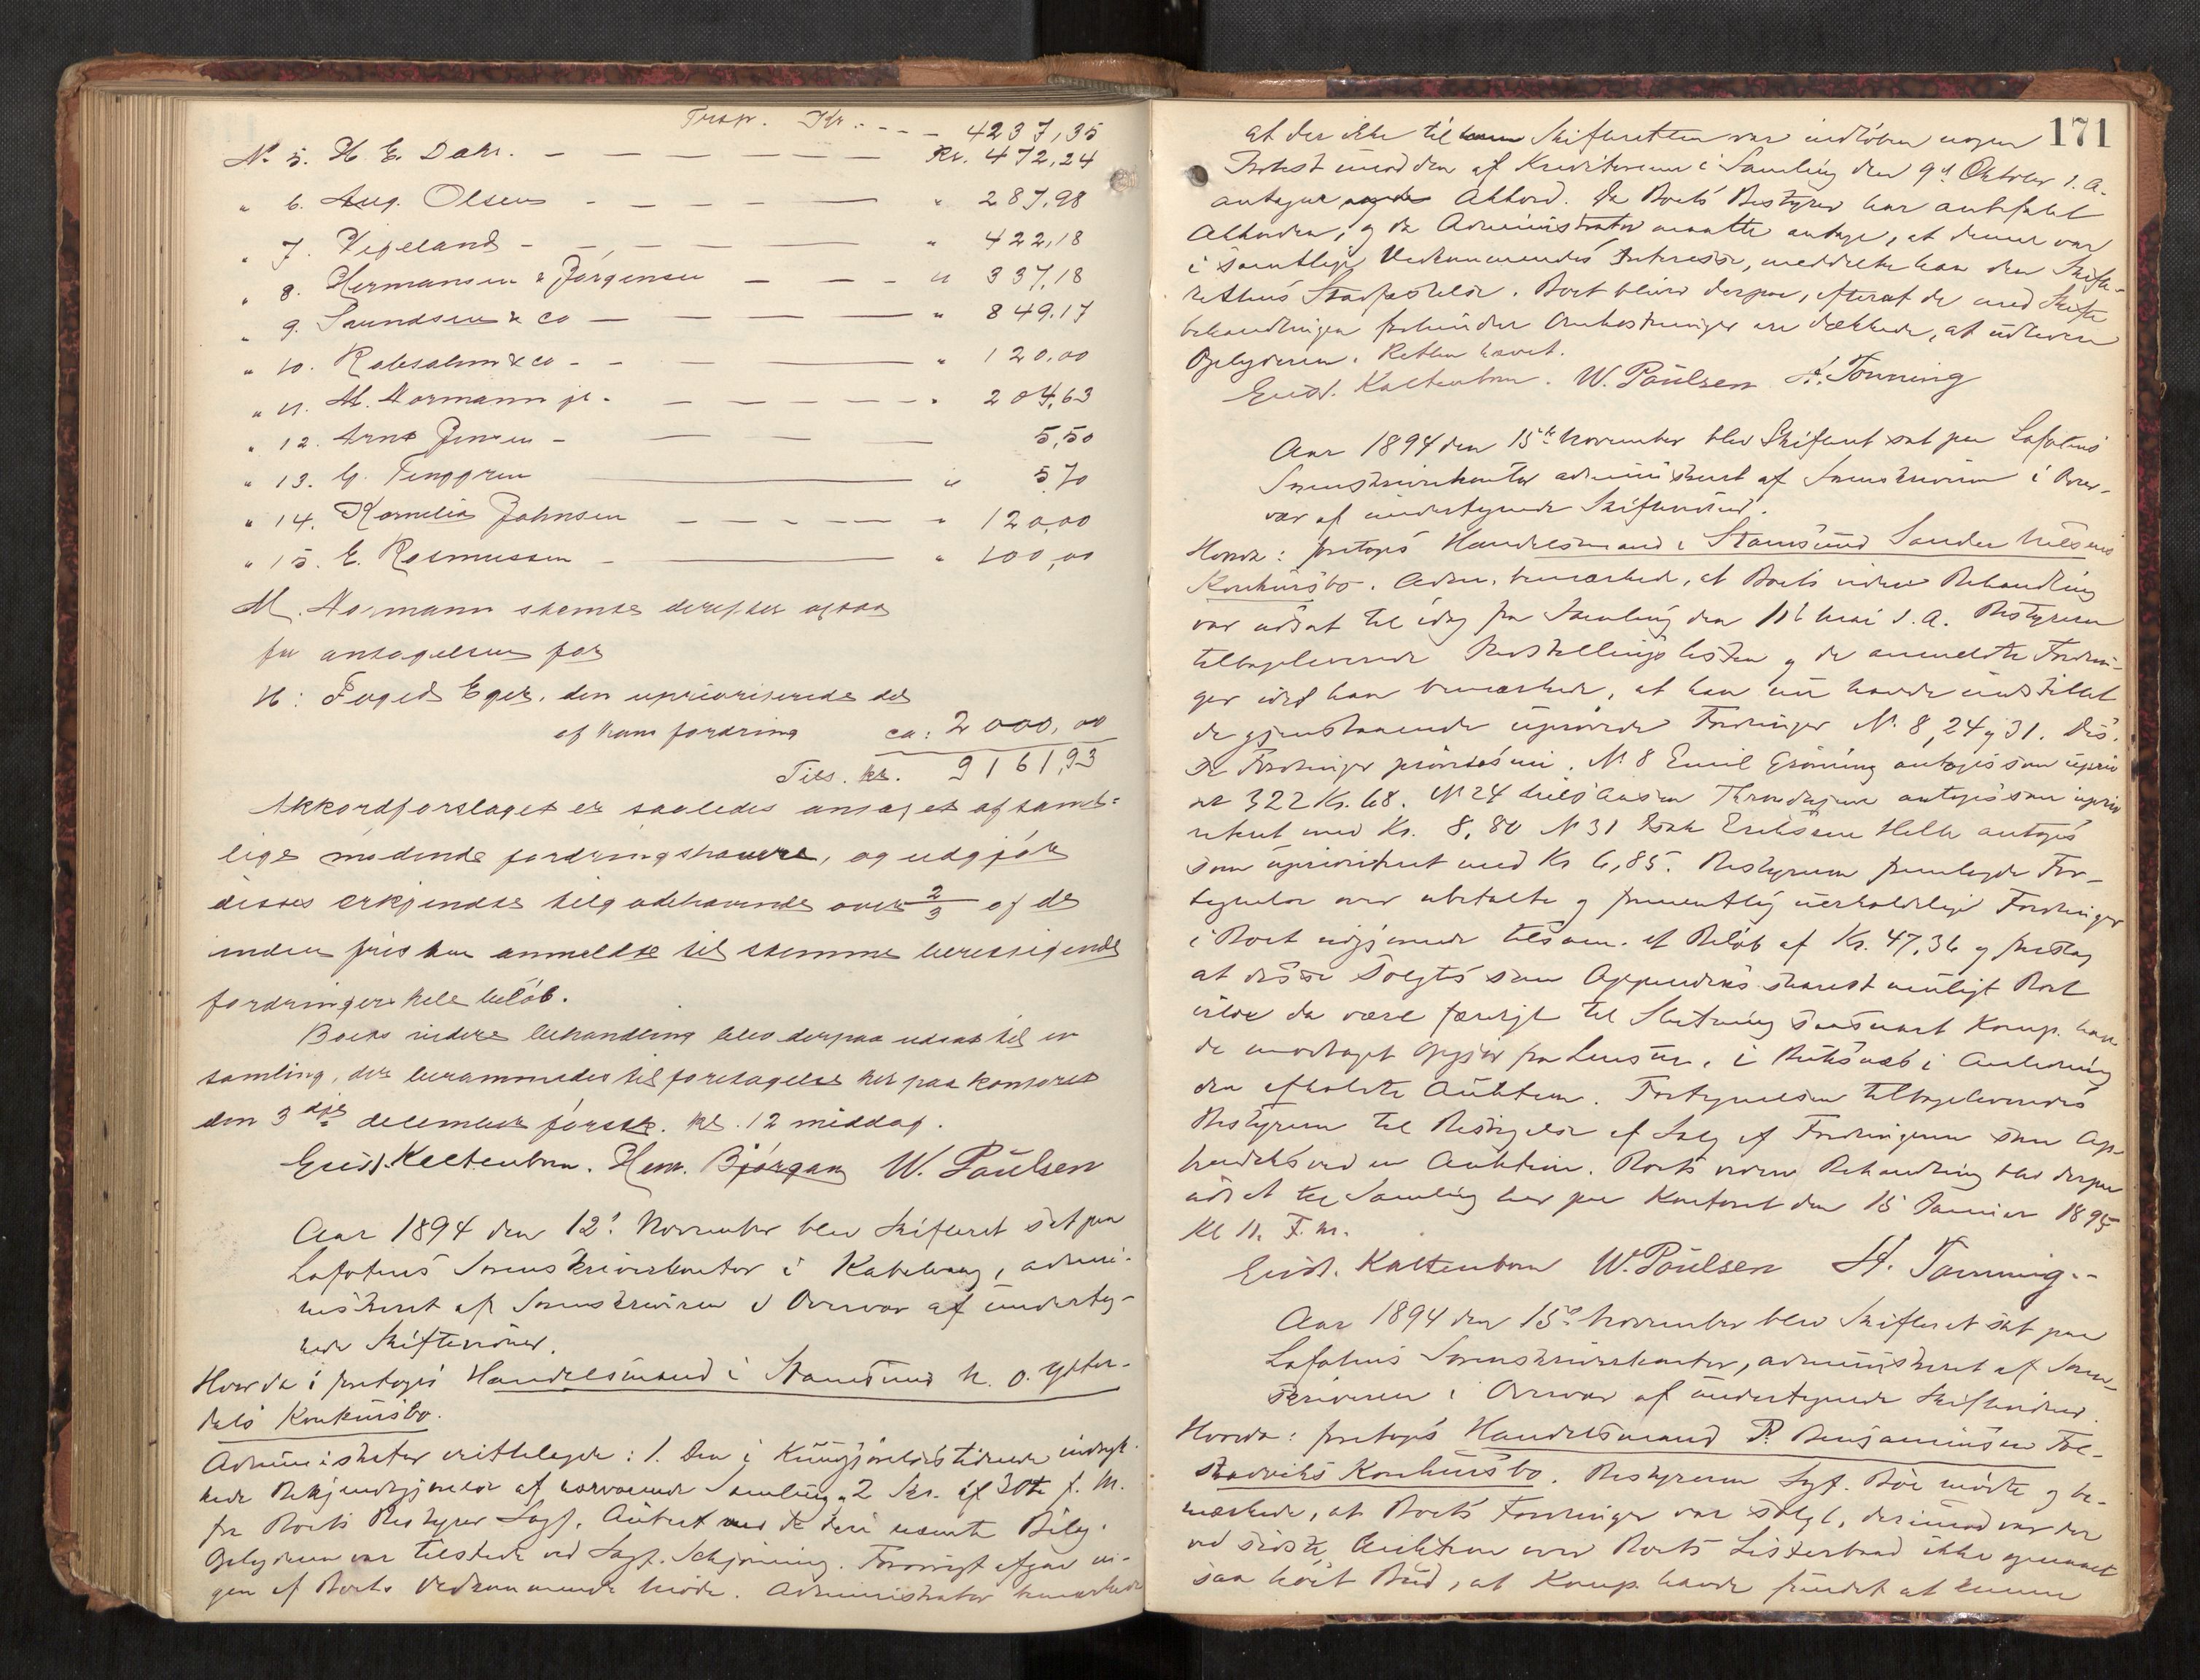 Trsp. Kr. - - - 4237,35
No 5. H. E. Dahl. — — — — — Kr. 472,24
" 6. Aug. Olsen - - - — — " 287,98
" 7. Vigeland - - — — — " 422,18
" 8. Hermansen & Jörgensen — — - " 337,18
" 9. Svendsen & co — — — — " 849.17
" 10. Robesahm & co - - — " 120,00
" 11. M. Normann jr. - — — - - - " 204,63
" 12. Arnt Jensen - — — — 5,50
" 13. G. Tenggren — " 5,70
" 14. Kornelia Johnsen - - - — — " 120,00
" 15. E. Rasmussen - — " 100,00
M. Normann stemte derefter ogsaa
for antagelsen for
N: Foged Eger, den uprioriterede del
af hans fordring ca: 2000,00
Tils. kr. 9161,93
Akkordforslaget er saaledes antaget af samt-
lige mødende fordringshavere, og udgjør
disses erkjendte tilgodehavende over 2/3 af de
inden fristen anmeldte til stemme berettigende
fordringers hele beløb.
Boets videre behandling blev derpaa udsat til en
samling, der berammedes til foretagelse her paa kontoret
den 3dje december førstk. kl. 12 middag.
Eust. Kaltenborn. Hem. Bjørgan W. Paulsen
Aar 1894 den 12te November blev Skifteret sat paa
Lofotens Sorenskriverkontor i Kabelvaag, admini-
nistreret af Sorenskriveren i Overvær af underteg-
nede Skiftevidner.
Hvorda: foretoges Handelsmand i Stamsund N. O. Ytter-
dals Konkursbo.
Administrator fremlagde: 1. Den i Kundgjørelsestidende indryk-
kede Bekjendtgjørelse af nærværende Samling, 2 Skr. af 30te f. M.
fra Boets Bestyrer Sagf. Aubert med de deri nævnte Bilag.
Opbyderen var tilstede ved Sagf. Schjønning. Forøvrigt afgav in-
gen af Boets Vedkommende Møde. Administrator bemærkede
171
at der ikke til Skifteretten var indløben nogen
Protest imod den af Kreditorerne i Samling den 9de Oktober d. A.
antagne Akkord. Da Boets Bestyrer har anbefalet
Akkorden, og da Administrator maatte antage, at denne var
i samtlige Vedkommendes Interesse, meddelte han den Skifte-
rettens Stadfæstelse. Boet bliver derpaa, efterat de med Skifte
behandlingen forbundne Omkostninger ere dækkede, at udlevere
Opbyderen. Retten hævet.
Eust. Kaltenborn. W. Paulsen H. Tønning
Aar 1894 den 15de November blev Skifteret sat paa Lofotens
Sorenskriverkontor administreret af Sorenskriveren i Over-
vær af undertegnede Skiftevidner.
Hvorda: foretoges Handelsmand i Stamsund Sander Nilsens
Konkursbo. Adm. bemærkede, at Boets videre Behandling
var udsat til idag fra Samling den 11te Mai d. A. Bestyreren
tilbageleverede Indstillingslisten og de anmeldte Fordrin-
ger idet han bemærkede, at han nu havde indstillet
de gjenstaaende uprøvede Fordringer No 8, 24 og 31. Dis-
se Fordringer prøvedes nu. No 8 Emil Grøning antoges som uprio
ret 322 Kr. 68. No 24 antoges som uprio
riteret med Kr. 8,80 No 31 Isak Eriksen Helle antoges
som uprioriteret med Kr 6,85. Bestyreren fremlagde For-
tegnelse over ubetalte og formentlig uerholdelige Fordringer
i Boet udgjørende tilsam. et Beløb af Kr. 47,36 og foreslog
at disse solgtes som Appendiks snarest muligt Boet
vilde da være færdigt til Slutning saasnart Komp. hav
de modtaget Opgjør fra Lensm. i Buksnæs i Anledning
den afholdte Auktion. Fortegnelsen tilbageleveredes
Bestyreren til Besørgelse af Salg af Fordringerne som Ap-
pendiks ved en Auktion. Boets videre Behandling blev derpaa
udsat til Samling her paa Kontoret den 15 Januar 1895
Kl 11. F. M.
Eust. Kaltenborn W. Paulsen H. Tønning.-
Aar 1894 den 15de November blev Skifteret sat paa
Lofotens Sorenskriverkontor, administreret af Soren-
skriveren i Overvær af undertegnede Skiftevidner.
Hvorda: foretoges Handelsmand P. Benjaminsen Tal-
Konkursbo. Bestyreren Sagf. Bøe mødte og be-
mærkede, at Boets Fordringer var solgt, derimod var der
ved sidste Auktion over Boets Listerbaad ikke opnaaet
saa høit Bud, at Komp. havde fundet at kunne